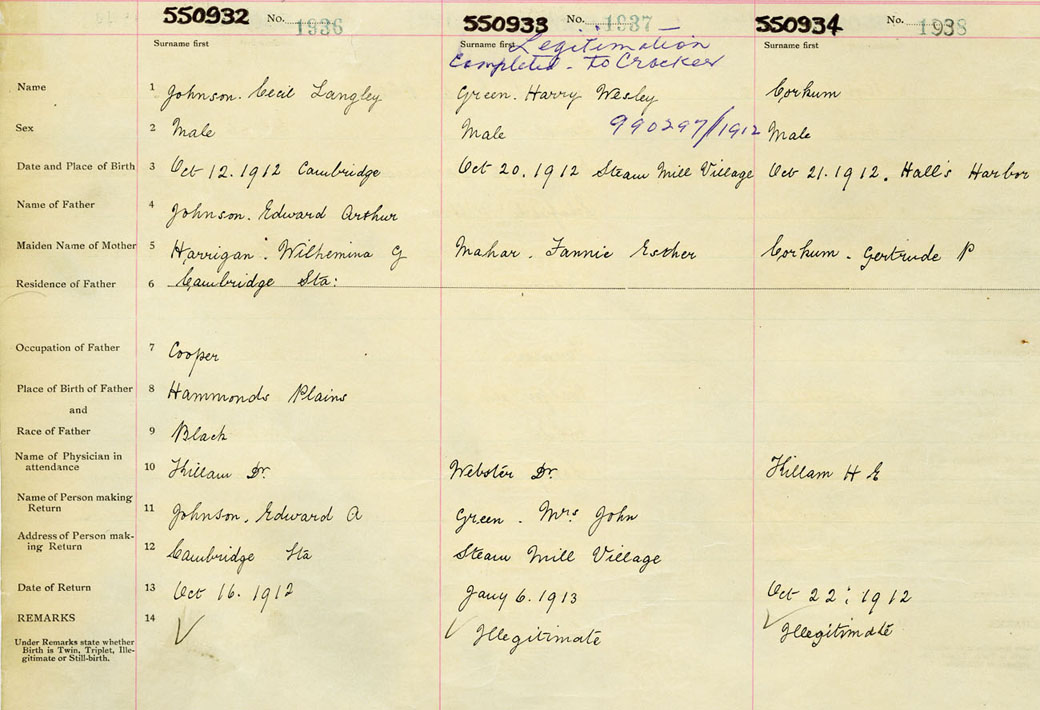 550932 No. 1936 550933 No. 1937 550934 No. 1938
Surname first Surname first Surname first
Legitimation
Completed - to Crocker
Name 1 Johnson. Cecil Langley Green. Harry Wesley Corkum
Sex 2 Male Male 990297/1912 Male
Date and Place of Birth 3 Oct 12. 1912 Cambridge Oct 20. 1912 Steam Mill Village Oct 21. 1912. Hall's Harbor
Name of Father 4 Johnson. Edward Arthur
Maiden Name of Mother 5 Harrigan. Wilhemina G Mahar. Fannie Esther Corkum. Gertrude P
Residence of Father 6 Cambridge Sta:
Occupation of Father 7 Cooper
Place of Birth of Father 8 Hammonds Plains
and
Race of Father 9 Black
Name of Physician in
attendance 10 Killam Dr. Webster Dr. Killam H E
Name of Person making
Return 11 Johnson, Edward A Green. Mrs John
Address of Person mak-
ing Return 12 Cambridge Sta Steam Mill Village
Date of Return 13 Oct 16. 1912 Jany 6. 1913 Oct 22: 1912
REMARKS 14 Illegitimate Illegitimate
Under Remarks state whether
Birth is Twin, Triplet, Ille-
gitimate or Still-birth.